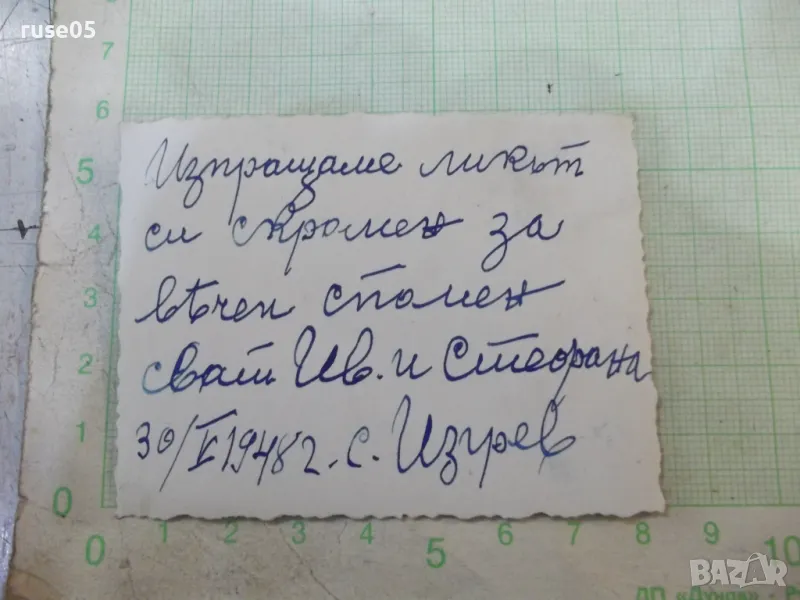 ruse05
7
6
5
4
3
2
1
0
Изпращаме ликът
си скромен за
вѣчен спомен
сват Ив. и Стефана
30/V 1948 г. с. Изгрев
0 1 2 3 4 5 6 7 8 9 10
BAZAR